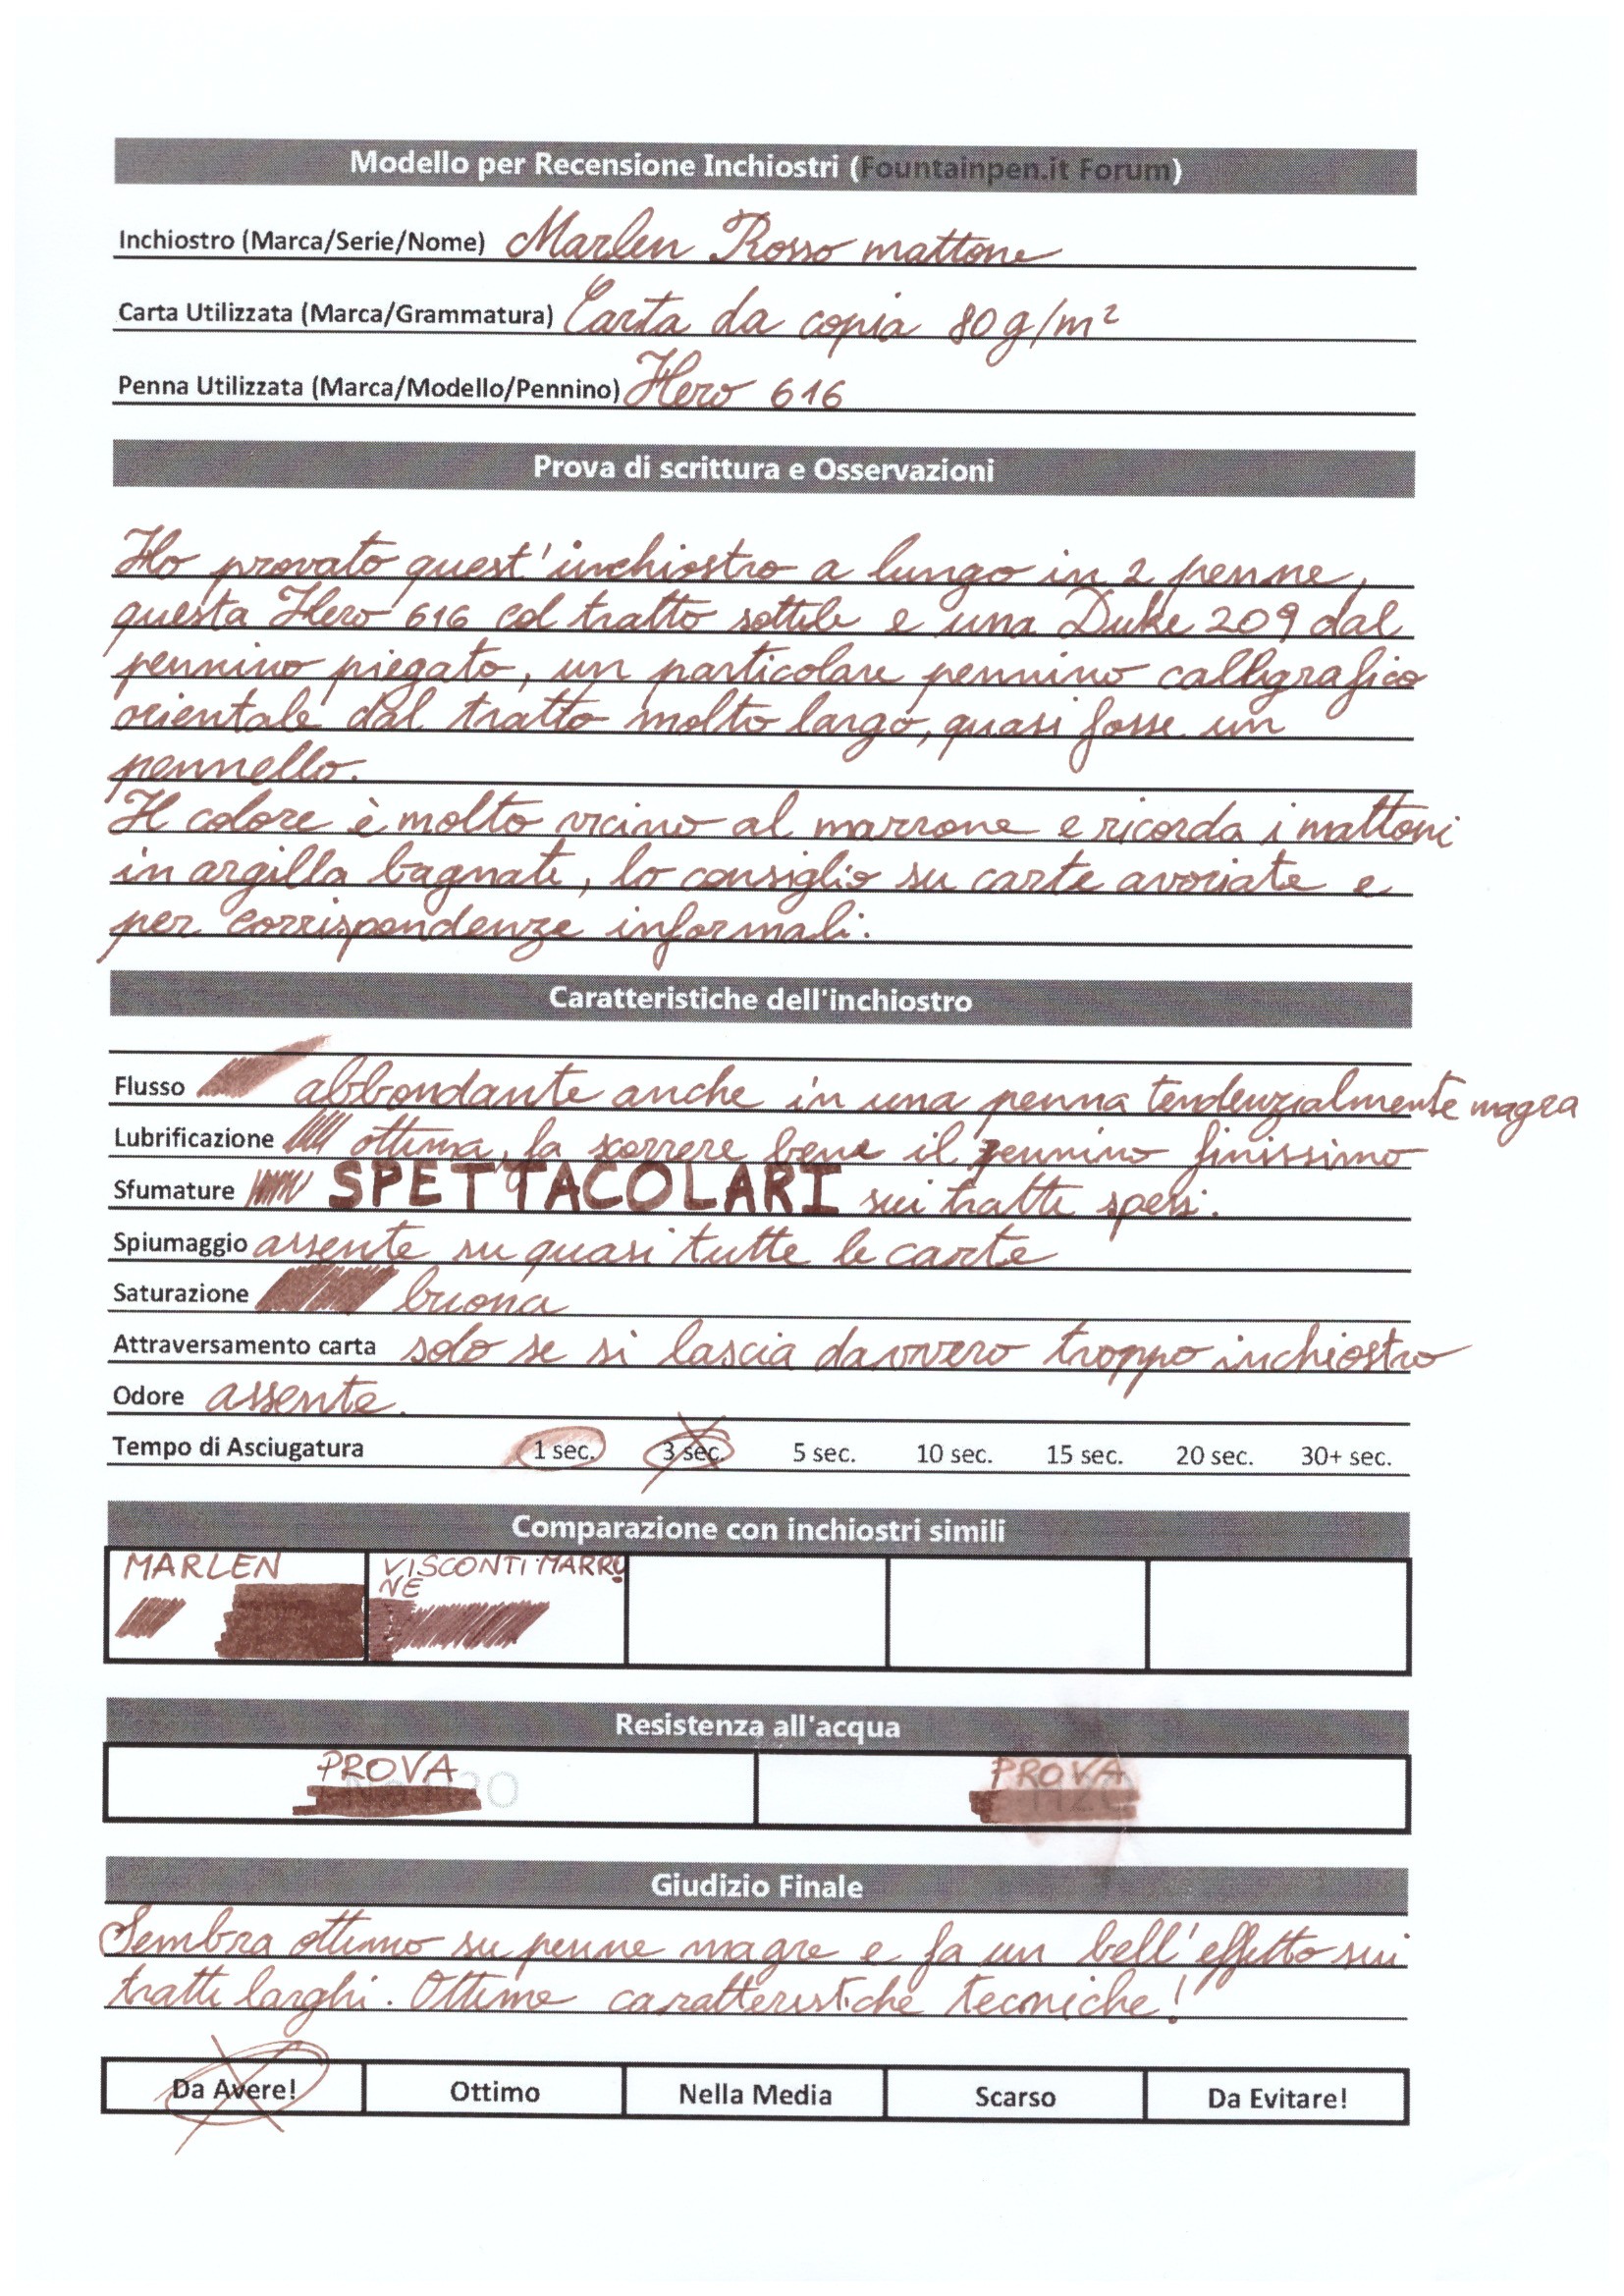 Modello per Recensione Inchiostri (Fountainpen.it Forum)
Inchiostro (Marca/Serie/Nome) Marlen Rosso mattone
Carta Utilizzata (Marca/Grammatura) Carta da copia 80g/m²
Penna Utilizzata (Marca/Modello/Pennino) Hero 616
Prova di scrittura e Osservazioni
Ho provato quest'inchiostro a lungo in 2 penne,
questa Hero 616 col tratto sottile e una Duke 209 dal
pennino piegato, un particolare pennino calligrafico
orientale dal tratto molto largo, quasi fosse un
pennello.
Il colore è molto vicino al marrone e ricorda i mattoni
in argilla bagnati, lo consiglio su carte avoriate e
per corrispondenze informali.
Caratteristiche dell'inchiostro
Flusso abbondante anche in una penna tendenzialmente magra
Lubrificazione ottima, fa scorrere bene il pennino finissimo
Sfumature SPETTACOLARI sui tratti spessi.
Spiumaggio assente su quasi tutte le carte
Saturazione buona
Attraversamento carta solo se si lascia davvero troppo inchiostro
Odore assente.
Tempo di Asciugatura 1 sec. 3 sec. 5 sec. 10 sec. 15 sec. 20 sec. 30+ sec.
Comparazione con inchiostri simili
MARLEN VISCONTI MARRO
NE
Resistenza all'acqua
PROVA PROVA
No H2O H2O
Giudizio Finale
Sembra ottimo su penne magre e fa un bell'effetto sui
tratti larghi. Ottime caratteristiche tecniche!
Da Avere! Ottimo Nella Media Scarso Da Evitare!